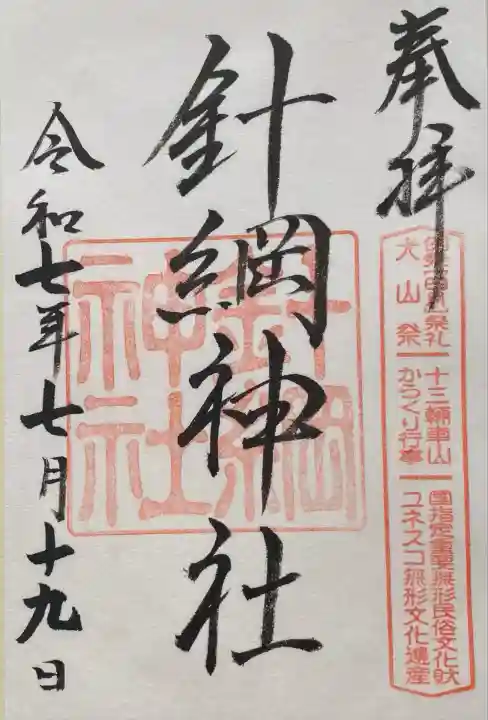 奉拝
犬山祭
十三輛車山
からくり行事
國指定重要無形民俗文化財
ユネスコ無形文化遺産
針綱神社
針綱神社
令和七年七月十九日